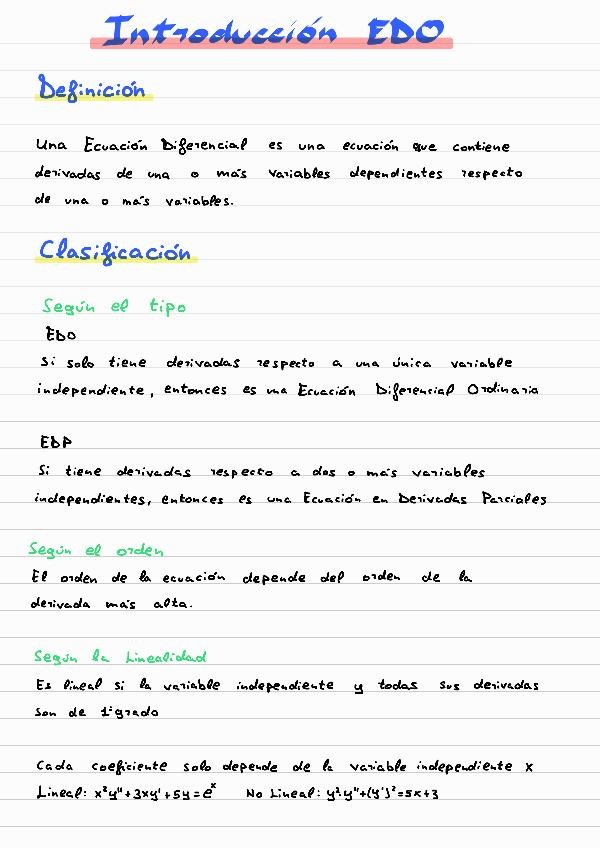 Introducción EDO
Definición
Una Ecuación Diferencial es una ecuación que contiene
derivadas de una o más variables dependientes respecto
de una o más variables.
Clasificación
Según el tipo
EDO
Si solo tiene derivadas respecto a una única variable
independiente, entonces es una Ecuación Diferencial Ordinaria
EDP
Si tiene derivadas respecto a dos o más variables
independientes, entonces es una Ecuación en Derivadas Parciales
Según el orden
El orden de la ecuación depende del orden de la
derivada más alta.
Según la Linealidad
Es lineal si la variable independiente y todas sus derivadas
son de 1º grado
Cada coeficiente solo depende de la variable independiente x
Lineal: x²y''+3xy'+5y=eˣ No Lineal: y²·y''+(y')²=5x+3